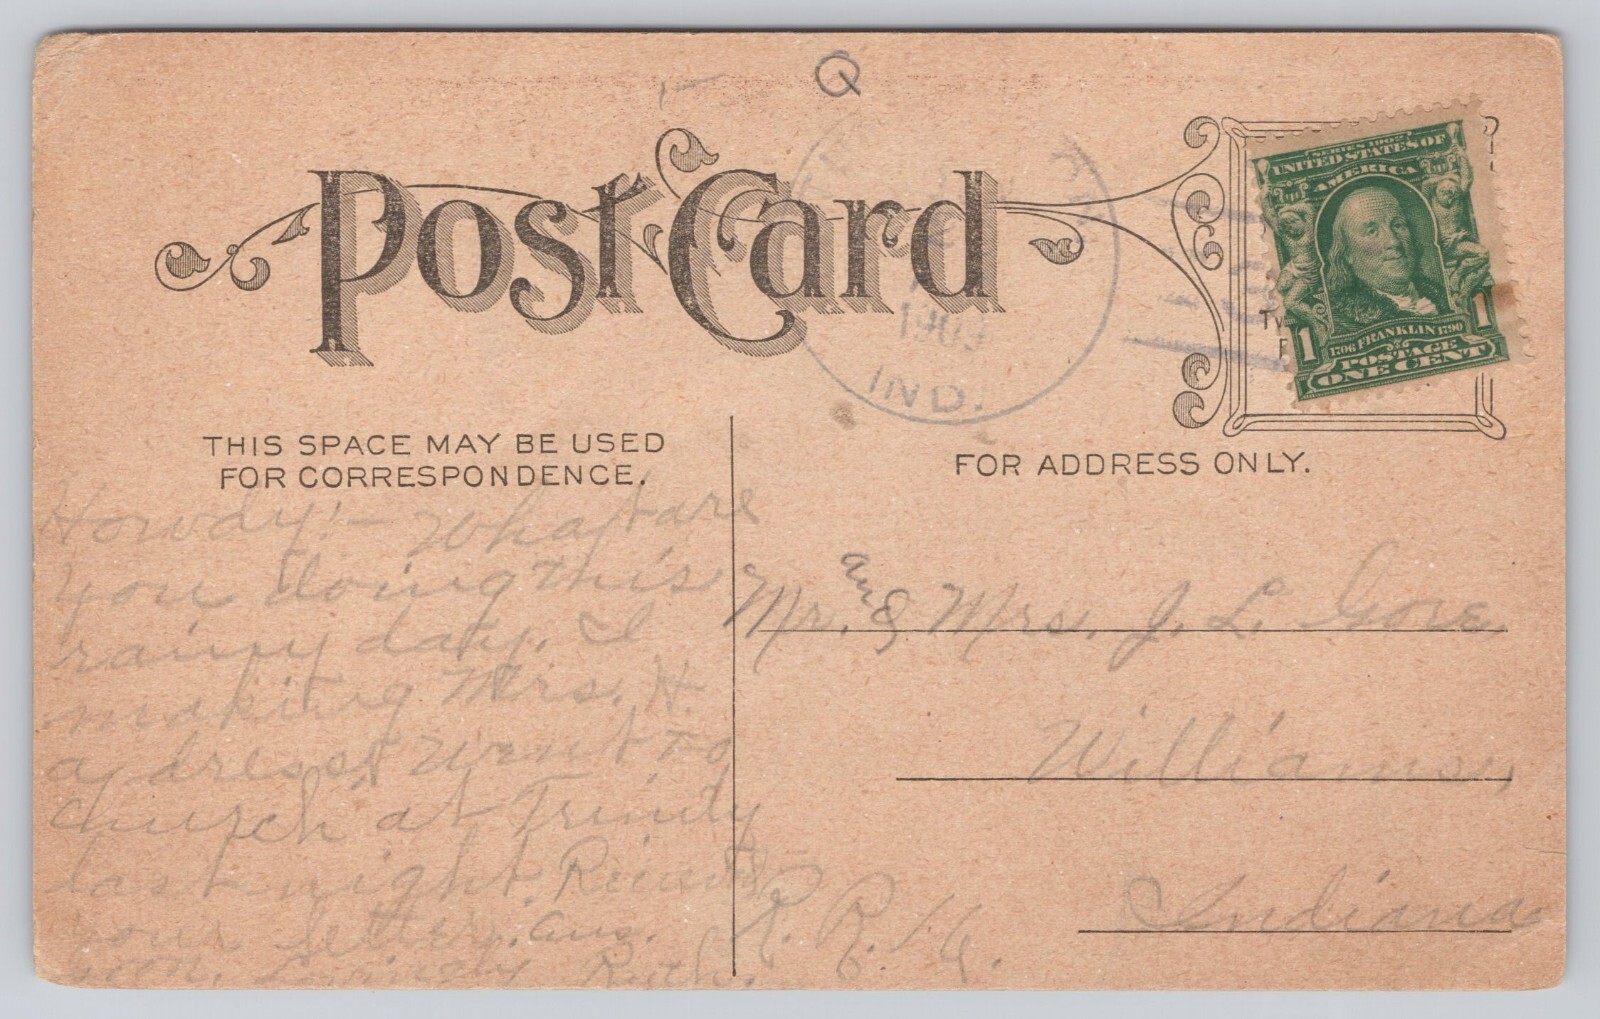 Q
Post Card
1909
IND.
SERIES 1902
UNITED STATES OF
AMERICA
1706 FRANKLIN 1790
1 1
POSTAGE
ONE CENT
THIS SPACE MAY BE USED
FOR CORRESPONDENCE.
FOR ADDRESS ONLY.
Howdy:- What are
you doing this
rainy day. I
making Mrs. H.
a dress. Went to
church at Trinity
last night.
your letter. ans.
soon. Ruth.
Mr. and & Mrs. J. L. Gore.
Williams,
Indiana
R. R.